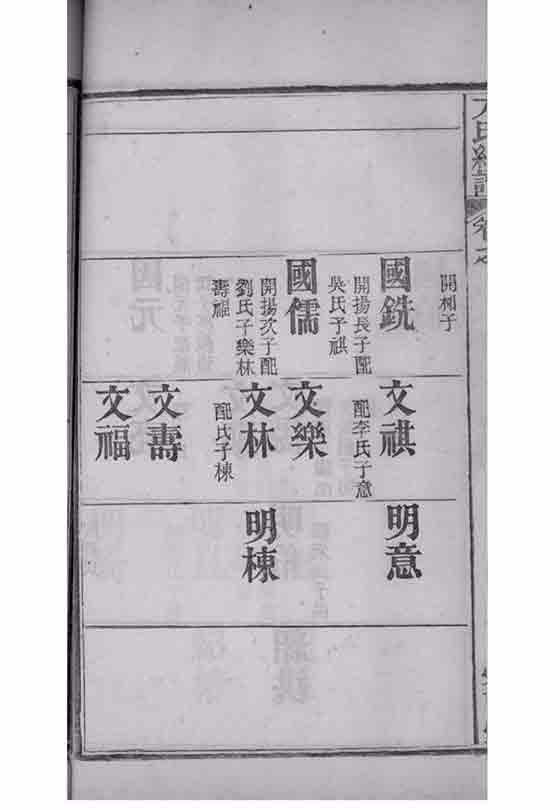 開利子
國銑
開揚長子配
吳氏子祺
國儒
開揚次子配
劉氏子樂林
壽福
文祺
配李氏子意
文樂
文林
配氏子棟
文壽
文福
明意
明棟